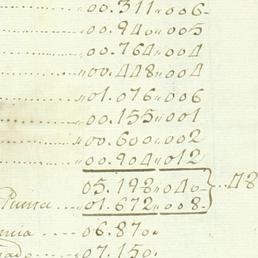 00.311 006
00.940 005
00.764 004
00.448 004
01.076 006
00.155 001
00.600 002
00.904 012
05.198 040
01.672 008 48
06.870
07.150